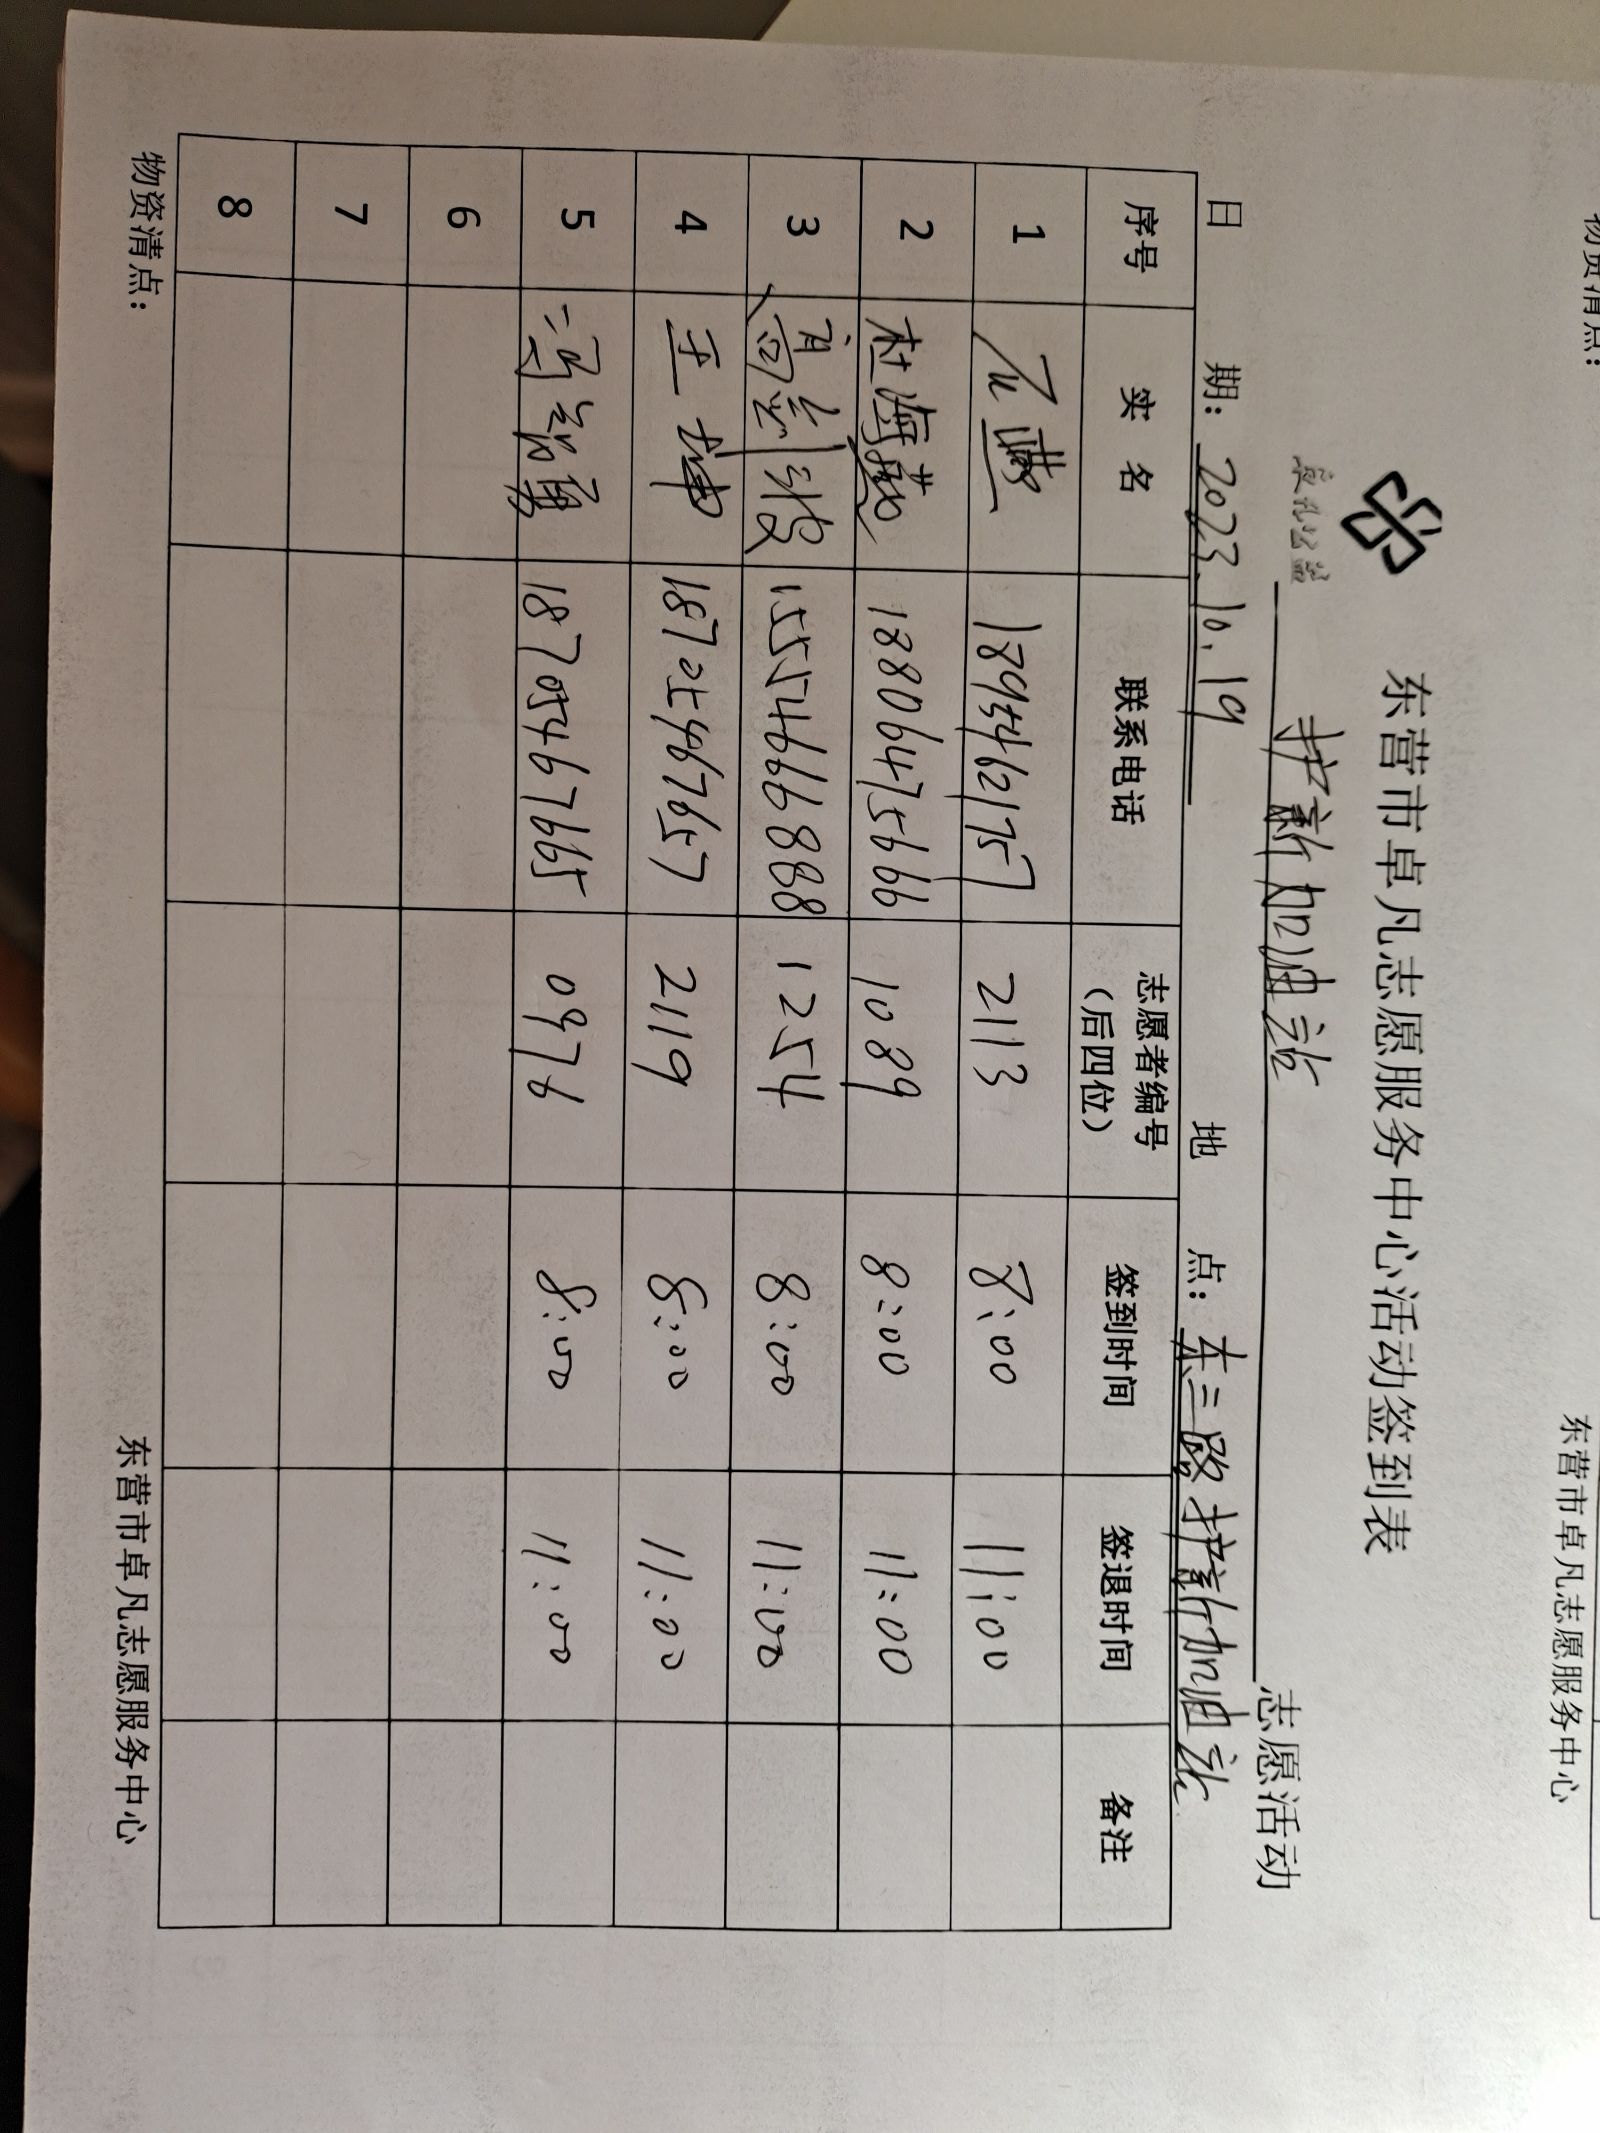 东营市卓凡志愿服务中心活动签到表
卓凡公益
护薪加油站 志愿活动
日 期：2023.10.19 地 点：东三路护薪加油站
序号 实 名 联系电话 志愿者编号（后四位） 签到时间 签退时间 备注
1 18954621757 2113 8:00 11:00
2 杜海燕 18806475666 1089 8:00 11:00
3 15554666888 1254 8:00 11:00
4 王坤 18705467657 2119 8:00 11:00
5 18705467665 0976 8:00 11:00
6
7
8
物资清点：
东营市卓凡志愿服务中心
物资清点：
东营市卓凡志愿服务中心